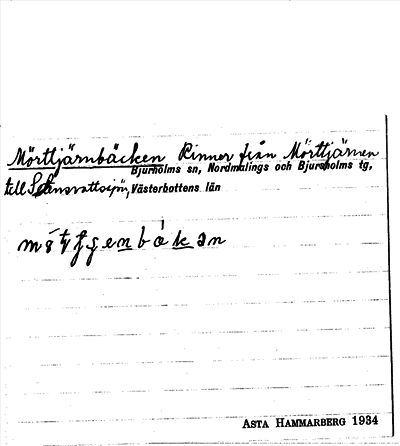 Mörttjärnbäcken Rinner från Mörttjärnen
Bjurholms sn, Nordmalings och Bjurholms tg,
till Västerbottens län
Asta Hammarberg 1934